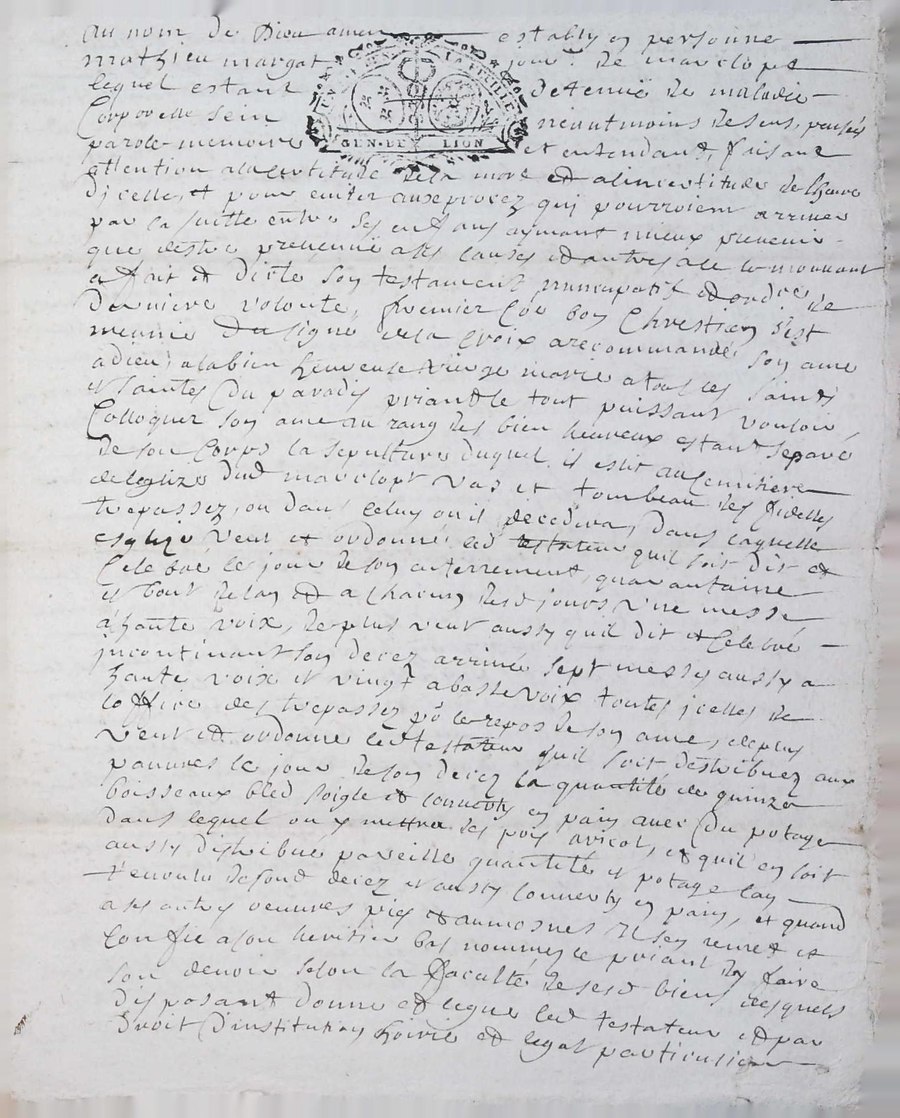 Au nom de Dieu amen estably en personne
mathieu margat jour. de marclopt
lequel estant detenüe de maladie
Corporelle sein neantmoins de sens, pensés
LA FEUILLE
GEN. DE LION
parole memoire et entendant, faisant
attention a la certitude de la mort et a lincertitude de lheure
dicelle, et pour euiter aux procez qui pourroient arriuer
par la suitte entre ses enfans aymant mieux preuenir
que destre preuenüe a ces causes et autres a ce le mouuant
a fait et dicté son testament nuncupatif et ordre de
derniere volonté, premier Coe bon Chrestien s'est
meunie du signe de la Croix a recommandé son ame
a dieu, a la bien heureuse vierge marie a tous les saints
et saintes du paradis priant le tout puissant vouloir
Colloquer son ame au rang des bien heureux estant separé
de son Corps la sepulture duquel il eslit au Cemitiere
de leglize dud marclopt vas et tombeau des fidelles
trepassez, ou dans celuy ou il decedera, dans laquelle
esglize veut et ordonne led testateur quil soit dit et
Celebré le jour de son enterrement, quarantaine
et bout de lan et a chacun desd jours vne messe
a haute voix, de plus veut aussy quil dit et Celebré
incontinant son decez arriué sept messes aussy a
haute voix et vingt a basse voix toutes jcelles de
loffice des trepassez pr le repos de son ame, de plus
veut et ordonne led testateur quil soit destribuez aux
pauures le jour de son decez la quantité de quinze
boisseaux bled soigle et conuerty en pain auec du potage
dans lequel on y mettra des pois aricot, et quil en soit
aussy distribué pareille quantité et potage lan
reuoulu de sond decez et aussy conuerty en pain, et quand
a ses autres oeuures pies et aumosnes il sen remet et
Confie a son heritier bas nommé le priant den faire
son deuoir selon la faculté de sesd biens desquels
disposant donne et legue led testateur et par
droit d'institution hoirie et legat particulier